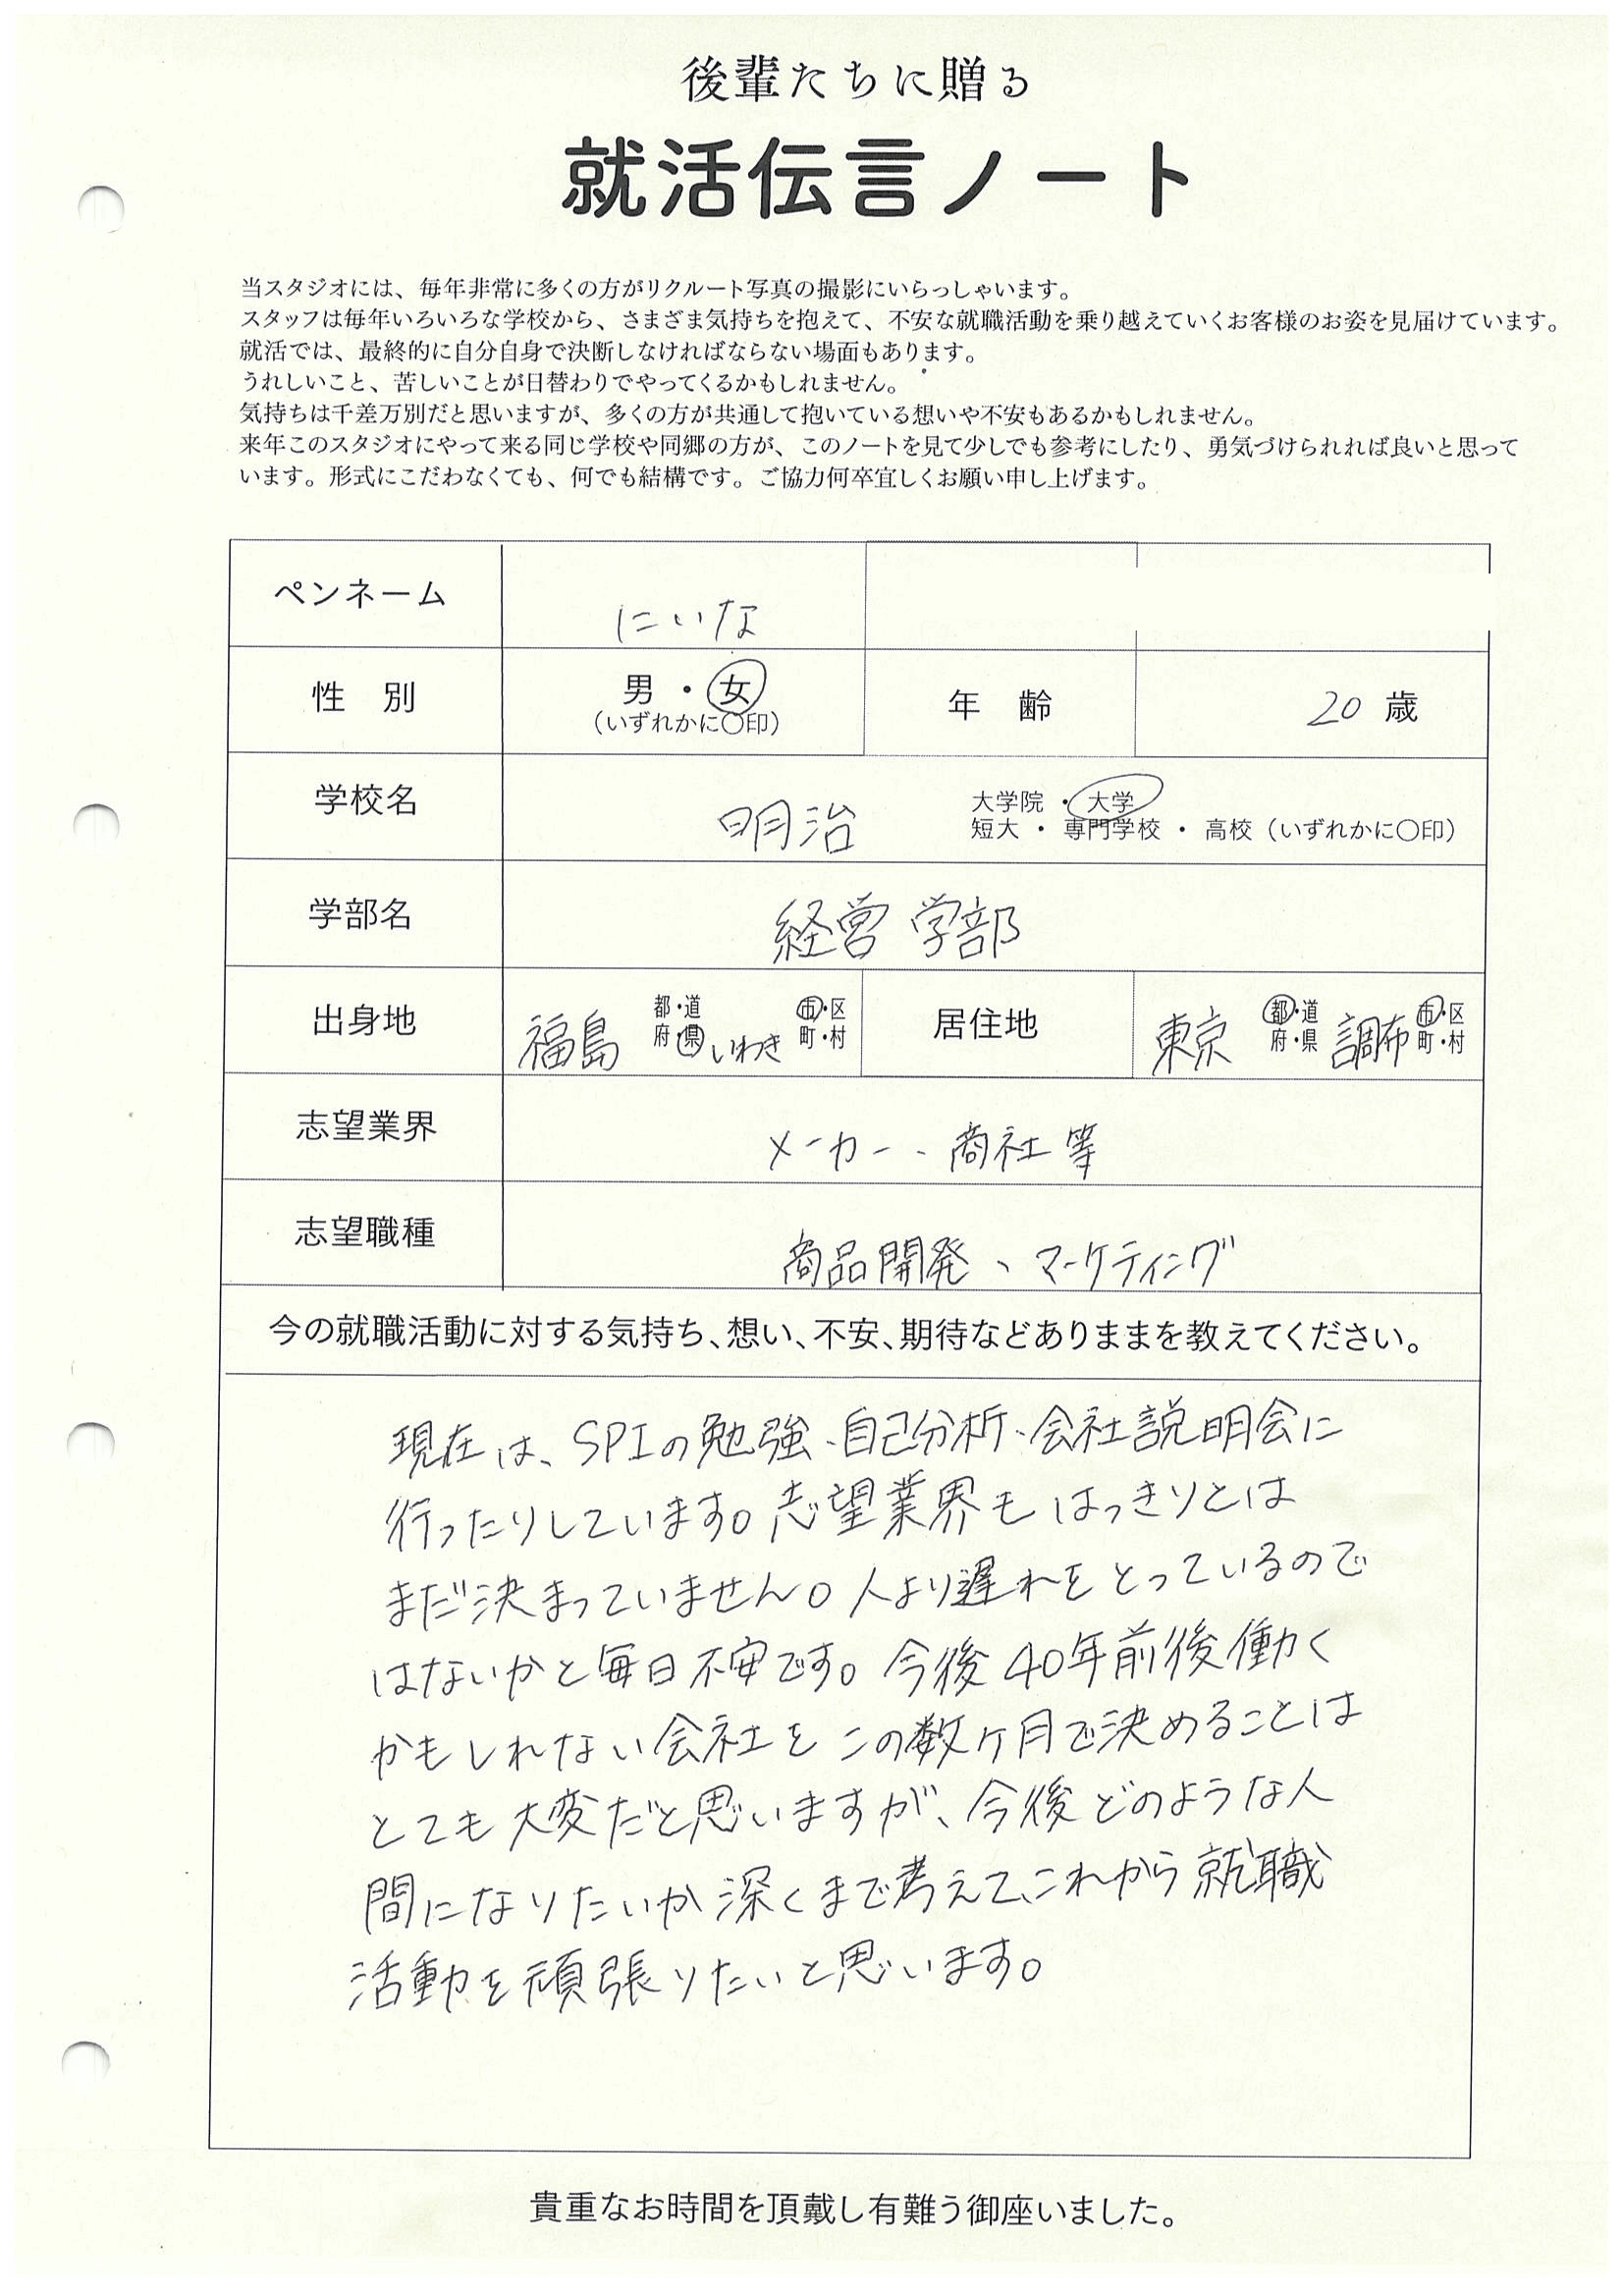 後輩たちに贈る
就活伝言ノート
当スタジオには、毎年非常に多くの方がリクルート写真の撮影にいらっしゃいます。
スタッフは毎年いろいろな学校から、さまざま気持ちを抱えて、不安な就職活動を乗り越えていくお客様のお姿を見届けています。
就活では、最終的に自分自身で決断しなければならない場面もあります。
うれしいこと、苦しいことが日替わりでやってくるかもしれません。
気持ちは千差万別だと思いますが、多くの方が共通して抱いている想いや不安もあるかもしれません。
来年このスタジオにやって来る同じ学校や同郷の方が、このノートを見て少しでも参考にしたり、勇気づけられれば良いと思って
います。形式にこだわなくても、何でも結構です。ご協力何卒宜しくお願い申し上げます。
ペンネーム にいな
性 別 男・女 年 齢 20 歳
(いずれかに〇印)
学校名 明治 大学院・大学
短大・専門学校・高校(いずれかに〇印)
学部名 経営学部
出身地 福島 都・道 府・県 いわき 市・区 町・村 居住地 東京 都・道 府・県 調布 市・区 町・村
志望業界 メーカー、商社等
志望職種 商品開発、マーケティング
今の就職活動に対する気持ち、想い、不安、期待などありままを教えてください。
現在は、SPIの勉強、自己分析、会社説明会に
行ったりしています。志望業界もはっきりとは
まだ決まっていません。人より遅れをとっているので
はないかと毎日不安です。今後40年前後働く
かもしれない会社をこの数ヶ月で決めることは
とても大変だと思いますが、今後どのような人
間になりたいか深くまで考えて、これから就職
活動を頑張りたいと思います。
貴重なお時間を頂戴し有難う御座いました。